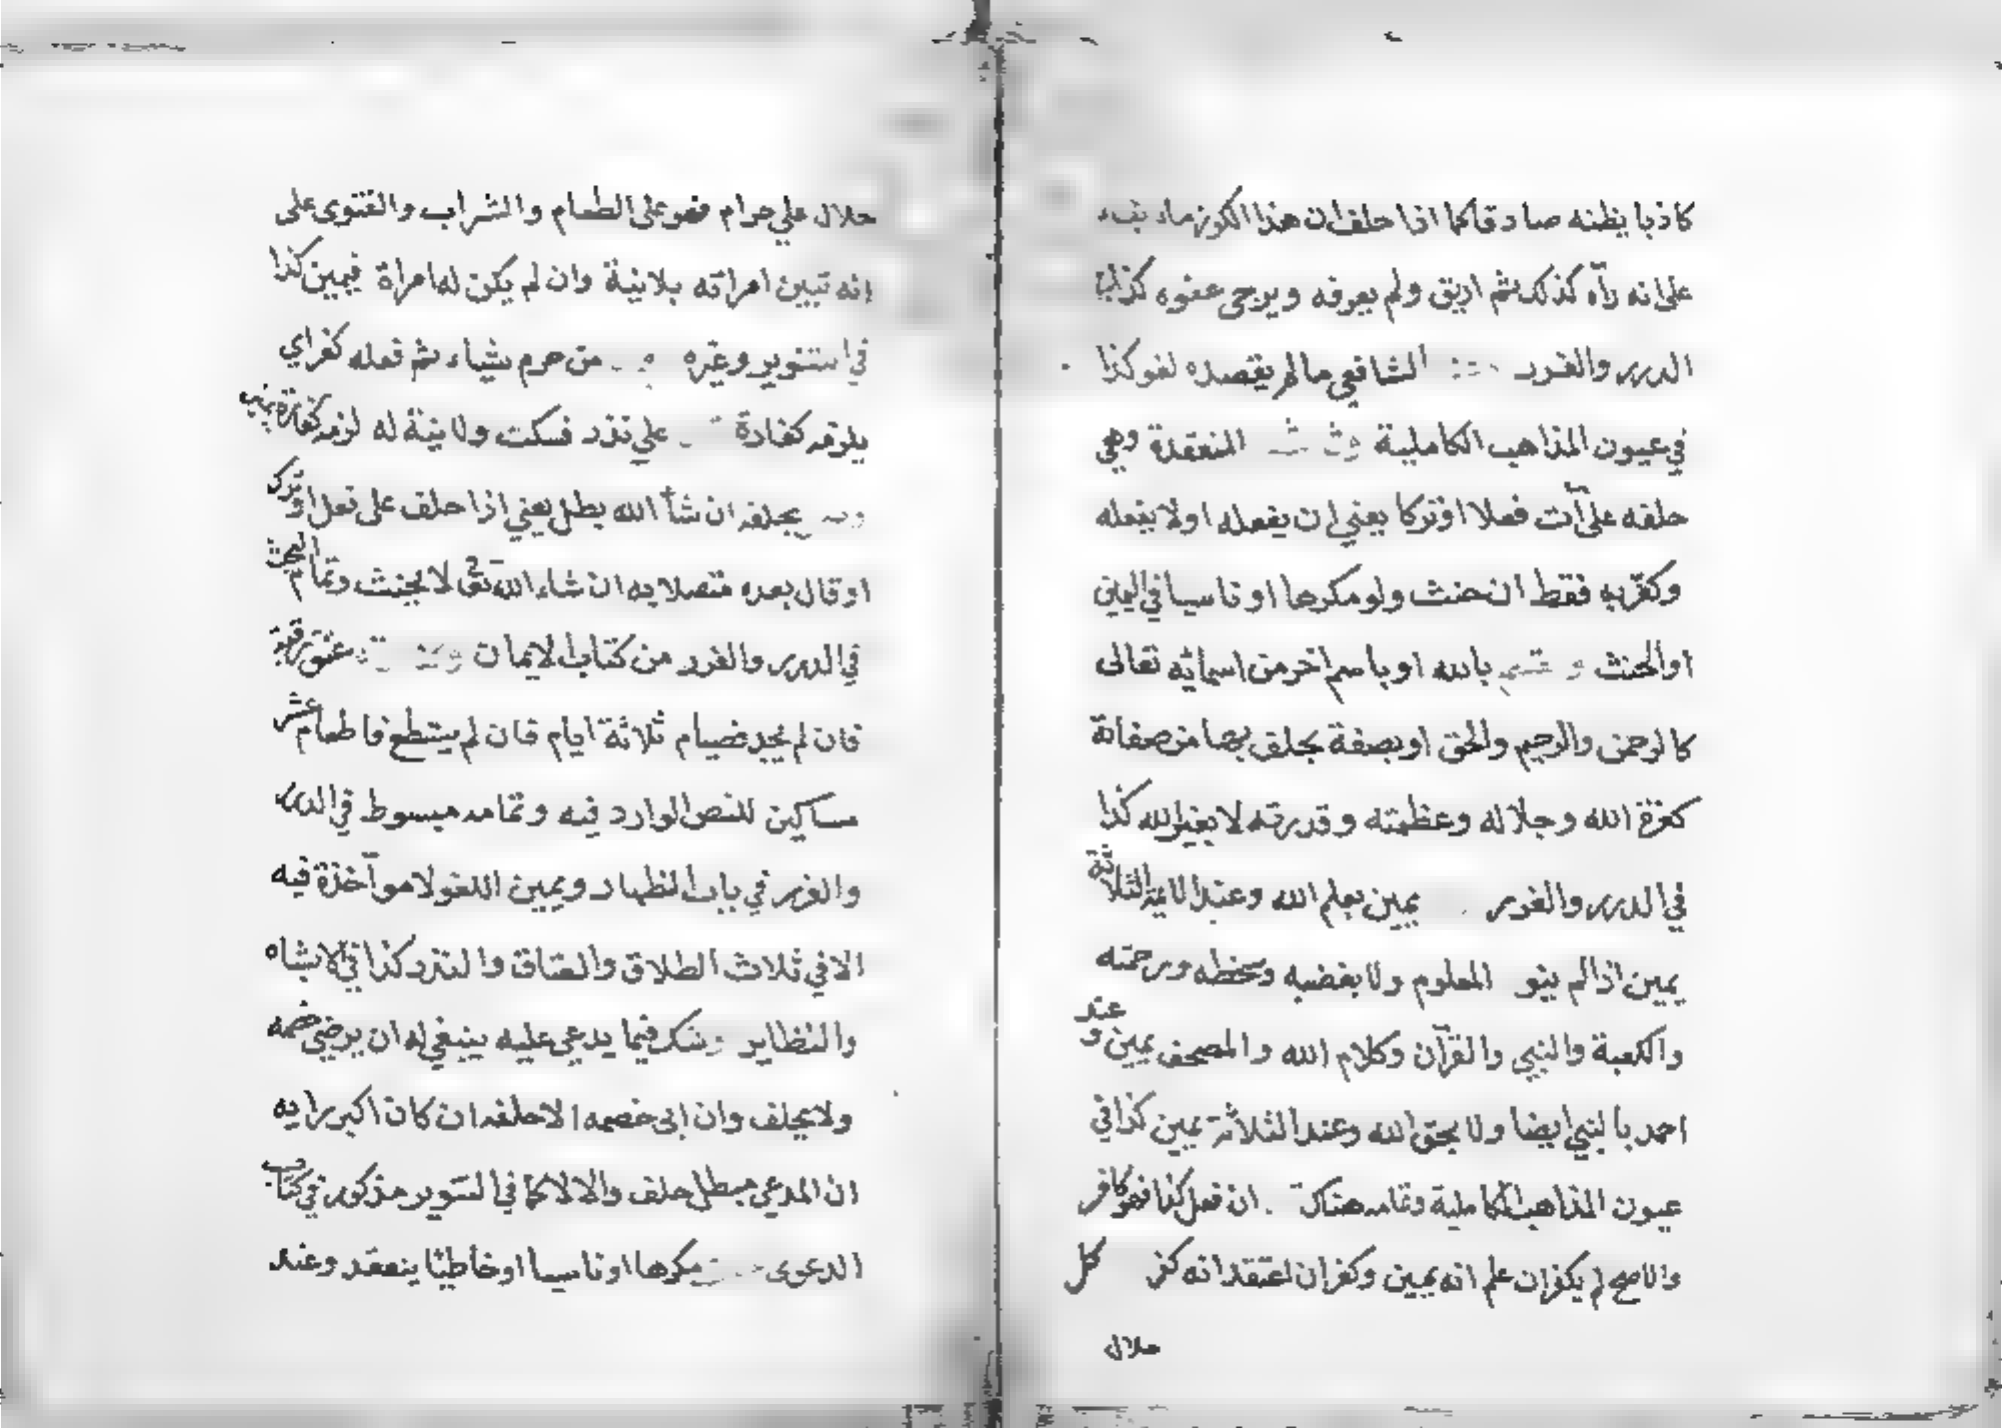 كاذبا يظنه صادقا كما اذا حلف ان هذا الكوز ماء بناء
على انه رآه كذلك ثم اريق ولم يعرفه ويرجى عفوه كذا في
الدرر والغرر الشافعي مالم يقصده لغو كذا
في عيون المذاهب الكاملية المنعقدة وهي
حلفه على آت فعلا او تركا يعني ان يفعله او لا يفعله
وكفر به فقط ان حنث ولو مكرها او ناسيا في اليمين
او الحنث و بالله او باسم اخر من اسمائه تعالى
كالرحمن والرحيم والحق او بصفة يحلف بها من صفاته
كعزة الله وجلاله وعظمته وقدرته لا بغير الله كذا
في الدرر والغرر يمين بعلم الله وعند الائمة الثلاثة
يمين اذا لم ينو المعلوم ولا بغضبه وسخطه ورحمته
والكعبة والنبي والقرآن وكلام الله والمصحف يمين و عند
احمد بالنبي ايضا ولا بحق الله وعند الثلاثة يمين كذا في
عيون المذاهب الكاملية وتمامه هناك ان فعل كذا فهو كافر
والاصح لم يكفر ان علم انه يمين وكفر ان اعتقد انه كفر كل
حلال
حلال علي حرام فهو على الطعام والشراب والفتوى على
انه تبين امراته بلا نية وان لم يكن له امراة فيمين كذا
في التنوير وغيره من حرم شياء ثم فعله كفر اي
يلزمه كفارة علي نذر فسكت ولا نية له لزمه كفارة يمين
بحلفه ان شأ الله بطل يعني اذا حلف على فعل او ترك
او قال بعده متصلا به ان شاء الله تعا لا يحنث وتمام البحث
في الدرر والغرر من كتاب الايمان عتق رقبة
فان لم يجد فصيام ثلاثة ايام فان لم يستطع فاطعام عشر
مساكين للنص الوارد فيه وتمامه مبسوط في الدرر
والغرر في باب الظهار ويمين اللغو لا مواخذة فيه
الا في ثلاث الطلاق والعتاق والنذر كذا في الاشباه
والنظاير وشك فيما يدعي عليه ينبغي له ان يرضي خصمه
ولا يحلف وان ابى خصمه الا حلفه ان كان اكبر رايه
ان المدعي مبطل حلف والا لا كما في التنوير مذكور في كتاب
الدعوى مكرها او ناسيا او خاطيا ينعقد وعند